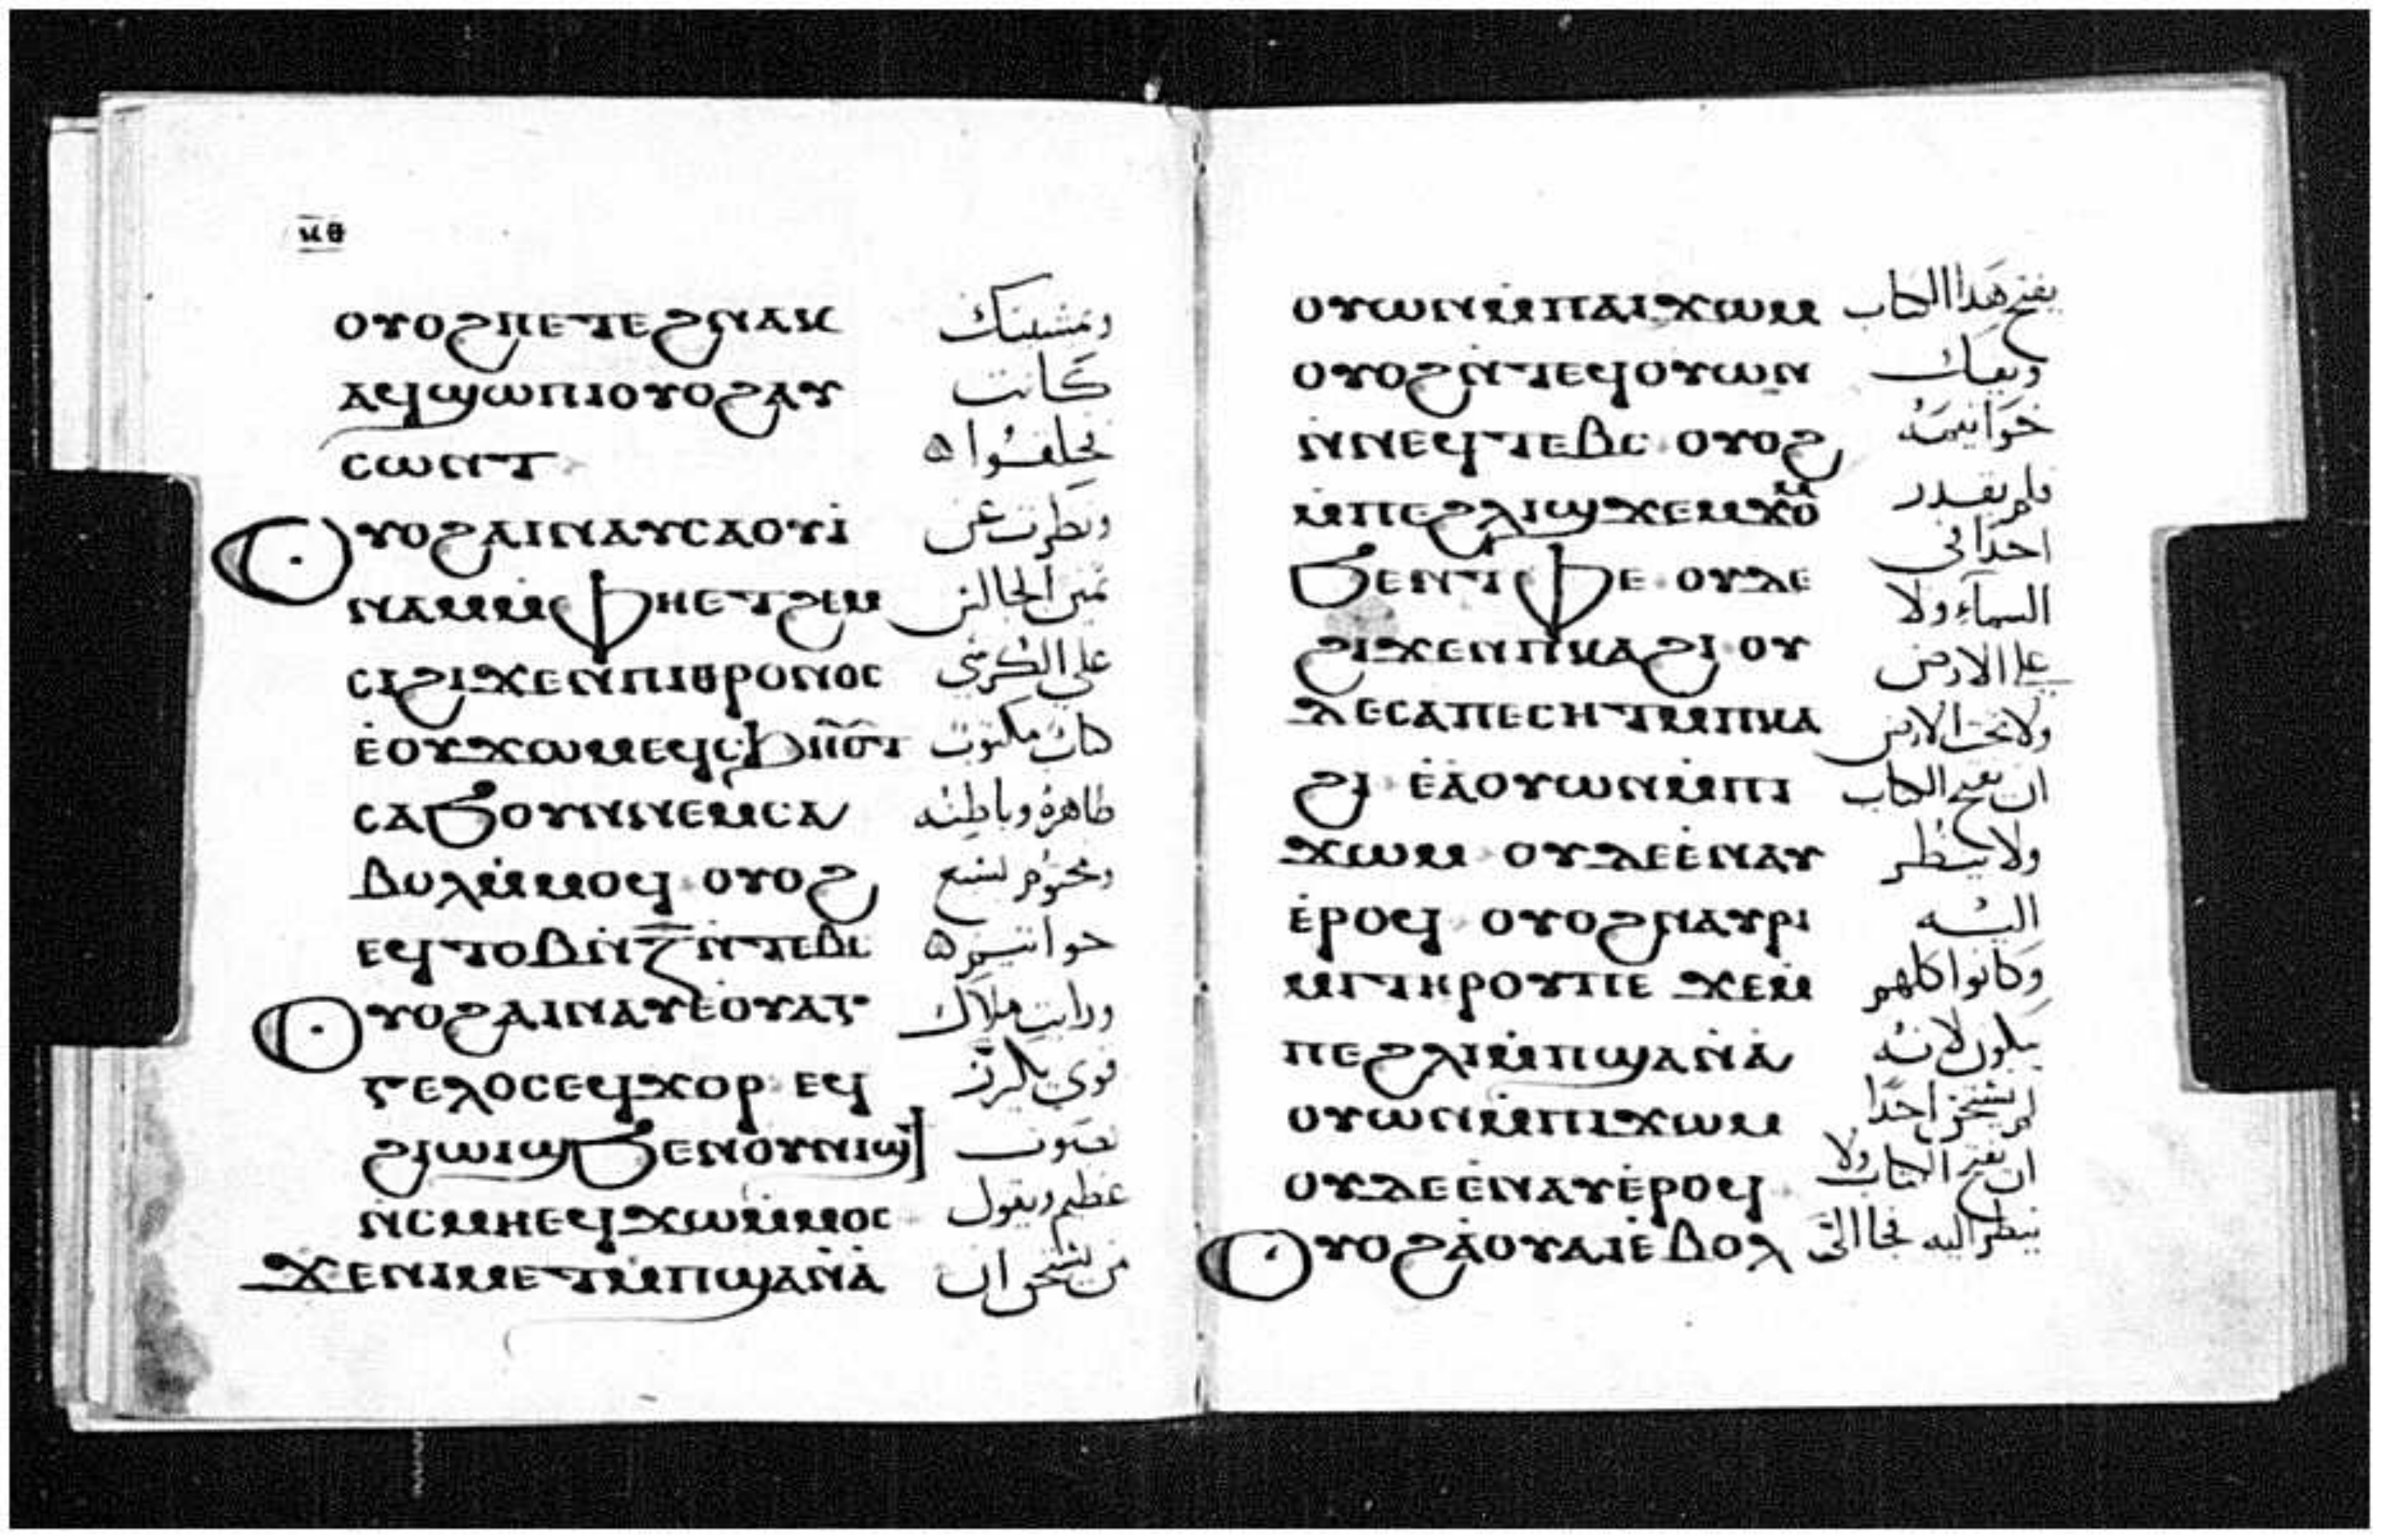 ⲕⲑ
ⲟⲩⲟϩⲡⲉⲧⲉϩⲛⲁⲕ ومشيتك
ⲁϥϣⲱⲡⲓⲟⲩⲟϩⲁⲩ كانت
ⲥⲱⲛⲧ فخلقوا
ⲟⲩⲟϩⲁⲓⲛⲁⲩⲥⲁⲟⲩⲓ̀ ونظرت عن
ⲛⲁⲙⲙ̀ⲫⲏⲉⲧϩⲉⲙ يمين الجالس
ⲥⲓϩⲓϫⲉⲛⲡⲓⲑⲣⲟⲛⲟⲥ على الكرسي
ⲉ̀ⲟⲩϫⲱⲙⲉϥⲥϧⲏⲟⲩⲧ كتاب مكتوب
ⲥⲁϧⲟⲩⲛⲛⲉⲙⲥⲁ ظاهره وباطنه
ⲃⲟⲗⲙ̀ⲙⲟϥ ⲟⲩⲟϩ ومختوم لسبع
ⲉϥⲧⲟⲃⲛ̀ⲍ̅ⲛ̀ⲧⲉⲃⲥ خواتيم
ⲟⲩⲟϩⲁⲓⲛⲁⲩⲉⲟⲩⲁⲅ ورايت ملاك
ⲅⲉⲗⲟⲥⲉϥϫⲟⲣ ⲉϥ قوي يكرز
ϩⲓⲱⲓϣϧⲉⲛⲟⲩⲛⲓϣϯ بصوت
ⲛ̀ⲥⲙⲏⲉϥϫⲱⲙ̀ⲙⲟⲥ عظيم ويقول
ϫⲉⲛⲓⲙⲉⲧⲙ̀ⲡϣⲁⲛ̀ⲁ̀ من يستحق ان
ⲟⲩⲱⲛⲙ̀ⲡⲁⲓϫⲱⲙ يفتح هذا الكتاب
ⲟⲩⲟϩⲛ̀ⲧⲉϥⲟⲩⲱⲛ ويفك
ⲛ̀ⲛⲉϥⲧⲉⲃⲥ ⲟⲩⲟϩ خواتيمه
ⲙ̀ⲡⲉϩⲗⲓϣϫⲉⲙϫⲟⲙ فلم يقدر
ϧⲉⲛⲧⲫⲉ ⲟⲩⲇⲉ احدا في السماء ولا
ϩⲓϫⲉⲛⲡⲕⲁϩⲓ ⲟⲩ على الارض
ⲇⲉⲥⲁⲡⲉⲥⲏⲧⲙ̀ⲡⲕⲁ ولا تحت الارض
ϩⲓ ⲉ̀ⲁ̀ⲟⲩⲱⲛⲙ̀ⲡⲓ ان يفتح الكتاب
ϫⲱⲙ ⲟⲩⲇⲉⲉ̀ⲛⲁⲩ ولا ينظر
ⲉ̀ⲣⲟϥ ⲟⲩⲟϩⲛⲁⲩⲣⲓ اليه
ⲙⲓⲧⲏⲣⲟⲩⲡⲉ ϫⲉⲙ̀ وكانوا كلهم
ⲡⲉϩⲗⲓⲙ̀ⲡϣⲁⲛ̀ⲁ̀ يبكون لانه
ⲟⲩⲱⲛⲙ̀ⲡⲓϫⲱⲙ لم يستحق احدا
ⲟⲩⲇⲉⲉ̀ⲛⲁⲩⲉ̀ⲣⲟϥ ان يفتح الكتاب ولا
ⲟⲩⲟϩⲁ̀ⲟⲩⲁⲓⲉ̀ⲃⲟⲗ ينظر اليه